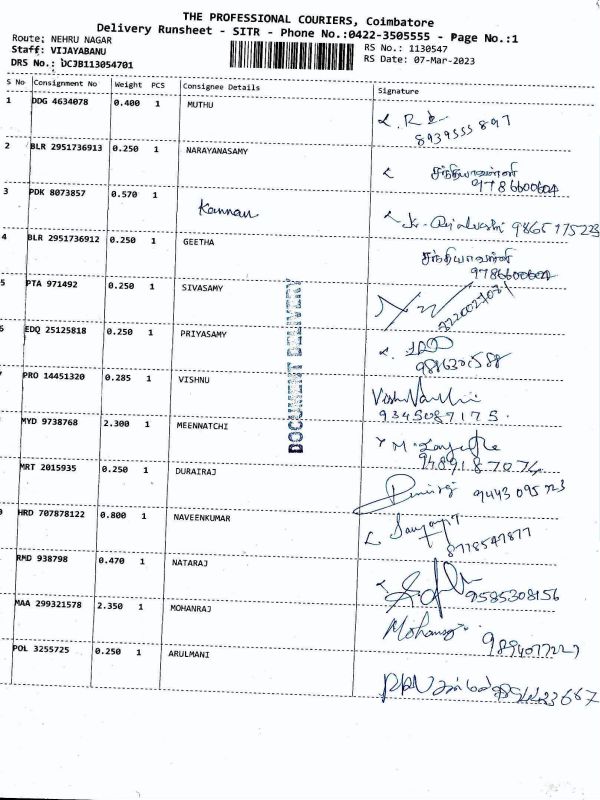 THE PROFESSIONAL COURIERS, Coimbatore
Delivery Runsheet - SITR - Phone No.:0422-3505555 - Page No.:1
Route: NEHRU NAGAR
RS No.: 1130547
Staff: VIJAYABANU
RS Date: 07-Mar-2023
DRS No.: DCJB113054701
S No Consignment No Weight PCS Consignee Details Signature
1 DDG 4634078 0.400 1 MUTHU
8939555897
2 BLR 2951736913 0.250 1 NARAYANASAMY
9786600604
3 PDK 8073857 0.570 1 Kannan 9865175223
4 BLR 2951736912 0.250 1 GEETHA
9786600604
5 PTA 971492 0.250 1 SIVASAMY
6 EDQ 25125818 0.250 1 PRIYASAMY
PRO 14451320 0.285 1 VISHNU
9345087175.
MYD 9738768 2.300 1 MEENNATCHI
9489187074
MRT 2015935 0.250 1 DURAIRAJ
9443 095723
HRD 707878122 0.800 1 NAVEENKUMAR
8778547877
RMD 938798 0.470 1 NATARAJ
9585308156
MAA 299321578 2.350 1 MOHANRAJ
POL 3255725 0.250 1 ARULMANI
DOCUMENT DELIVERY